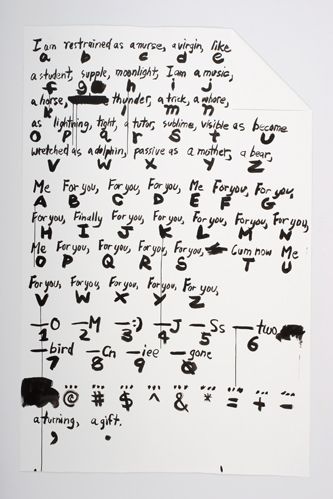 I am restrained as a nurse, a virgin, like
a b c d e
a student, supple, moonlight, I am a music,
f g h i j
a horse, thunder, a trick, a whore,
k l m n
as lightning, tight, a tutor, sublime, visible as become
o p q r s t u
wretched as a dolphin, passive as a mother, a bear,
v w x y z
Me For you, For you, For you, Me For you, For you,
A B C D E F G
For you, Finally For you, For you, For you, For you, For you,
H I J K L M N
Me For you, For you, For you, For you, Cum now Me
O P Q R S T U
For you, For you, For you, For you, For you,
V W X Y Z
—O —M —:) —J —Ss —two
1 2 3 4 5 6
—bird —Cn —iee —gone
7 8 9 0
@ # $ ^ & * = + -
a turning, a gift.
, .